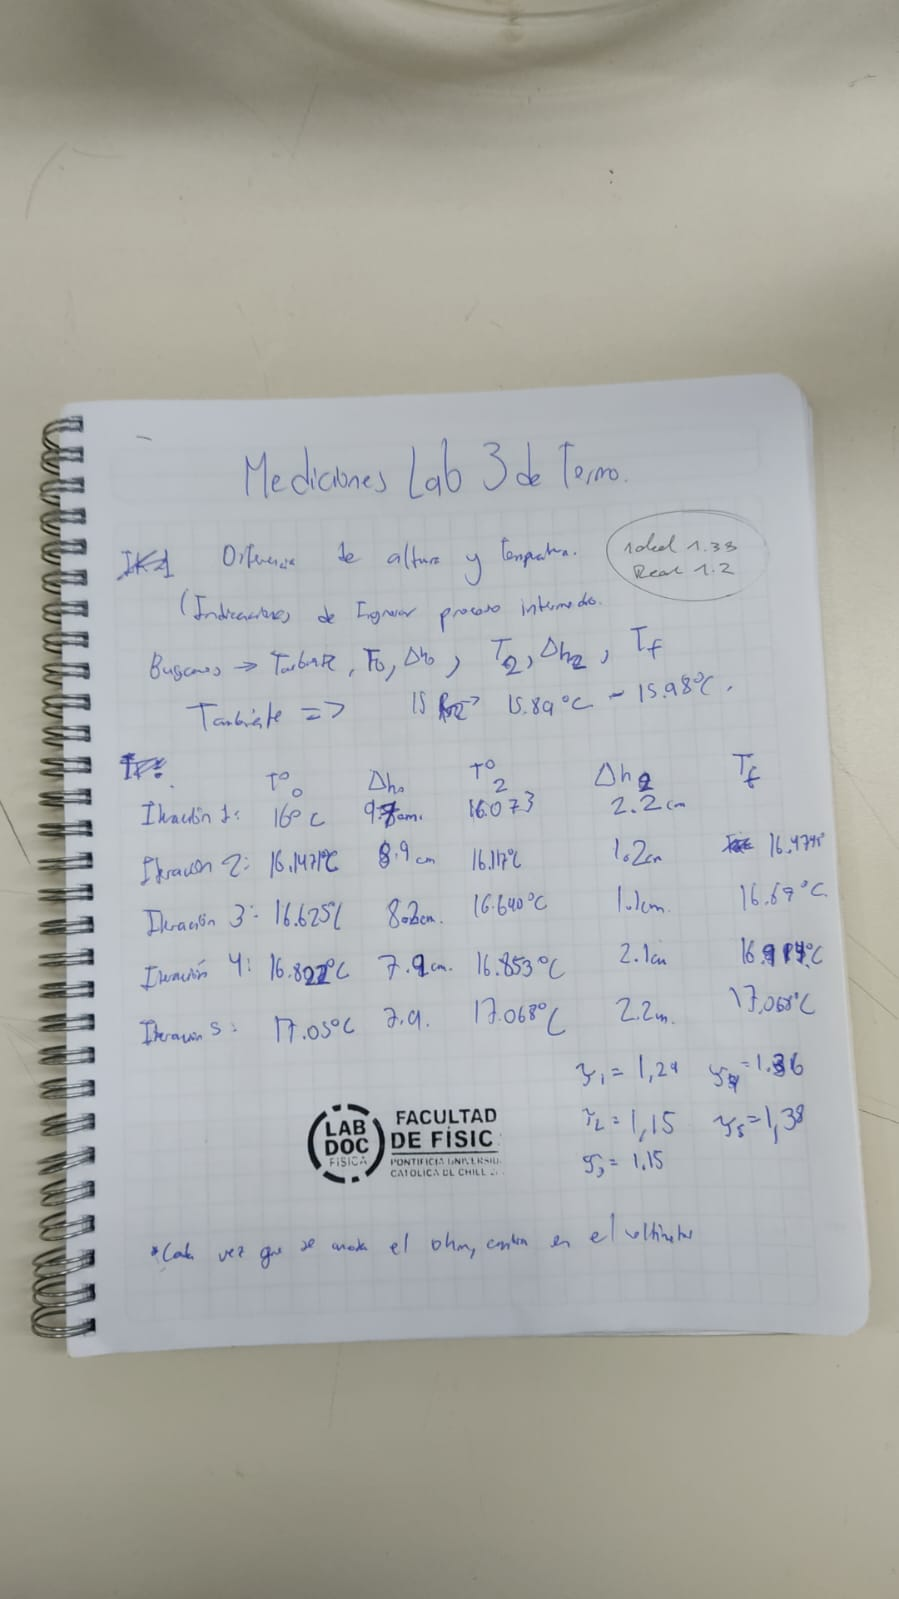 Mediciones Lab 3 de Termo.
Diferencia de altura y temperatura.
Ideal 1.33
Real 1.2
(Indicaciones de Ignorar proceso intermedio.
Buscamos → Tambiente, T0, Δh0, T2, Δh2, Tf
Tambiente => 15.89°C - 15.98°C.
T°0 Δh0 T°2 Δh2 Tf
Iteración 1: 16°C cm. 16.073 2.2cm
Iteración 2: 16.147°C 8.9cm 16.17°C 1.2cm
Iteración 3: 16.625°C cm. 16.640°C 1.1cm. 16.67°C.
Iteración 4: °C 7.9cm. 16.853°C 2.1cm
Iteración 5: 17.05°C 7.9. 17.068°C 2.2m. 17.068°C
γ1 = 1,29 = 1.36
γ2 = 1,15 γ5 = 1,38
γ3 = 1.15
LAB
DOC
FÍSICA
FACULTAD
DE FÍSIC
PONTIFICIA UNIVERSID
CATÓLICA DE CHILE
*Cada vez que se el ohm, cambia en el voltímetro